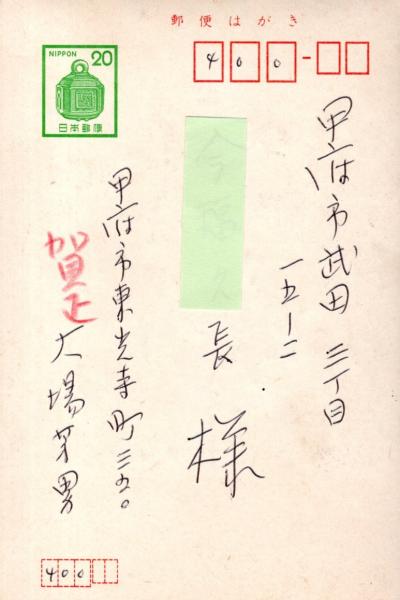 郵便はがき
400-
NIPPON 20
日本郵便
甲府市武田三丁目
一五ー二
長様
甲府市東光寺町三五〇
賀正
大場芳男
400